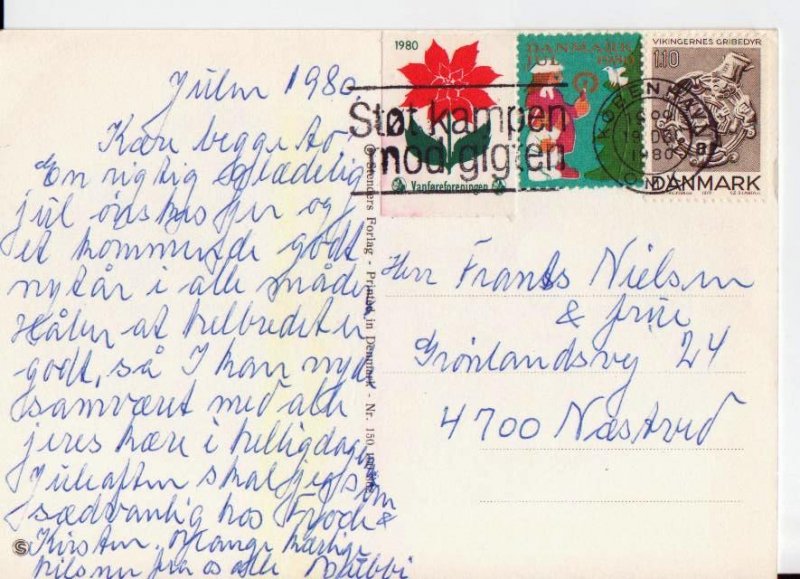 Julen 1980.
Kære begge to!
En rigtig glædelig
jul ønskes jer og
et kommende godt
nytår i alle måder
Håber at helbredet er
godt, så I kan nyde
samværet med alle
jeres kære i helligdagene
Juleaften skal jeg som
sædvanlig hos Frode &
Kirsten. Mange kærlige
hilsner fra os alle
1980
Vanføreforeningen
DANMARK
JUL 1980
Støt kampen
mod gigten
KØBENHAVN
19.
1980
VIKINGERNES GRIBEDYR
110
DANMARK
© Stenders Forlag - Printed in Denmark - Nr. 150
Herr Frants Nielsen
& frue
Grønlandsvej 24
4700 Næstved